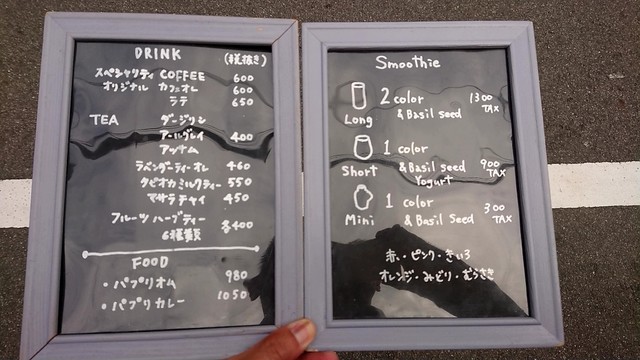 DRINK (税抜き)
スペシャリティ COFFEE 600
オリジナル カフェオレ 600
ラテ 650
TEA ダージリン
アールグレイ 400
アッサム
ラベンダーティーオレ 460
タピオカミルクティー 550
マサラチャイ 450
フルーツハーブティー 各400
6種類
FOOD
・パプリオム 980
・パプリカレー 1050
Smoothie
2 color 1300
Long & Basil seed TAX
1 color
Short & Basil seed 900
Yogurt TAX
1 color 300
Mini & Basil seed TAX
赤・ピンク・きいろ
オレンジ・みどり・むらさき